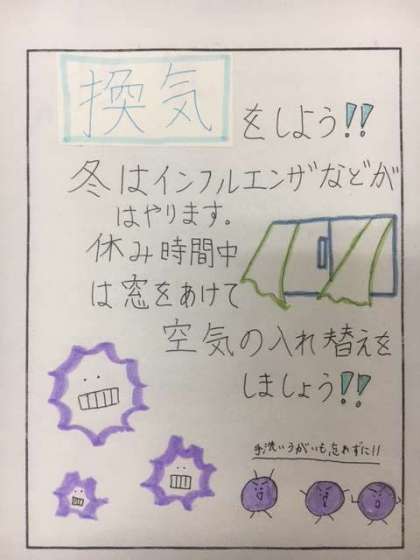 換気をしよう!!
冬はインフルエンザなどが
はやります。
休み時間中
は窓をあけて
空気の入れ替えを
しましょう!!
手洗いうがいも忘れずに!!